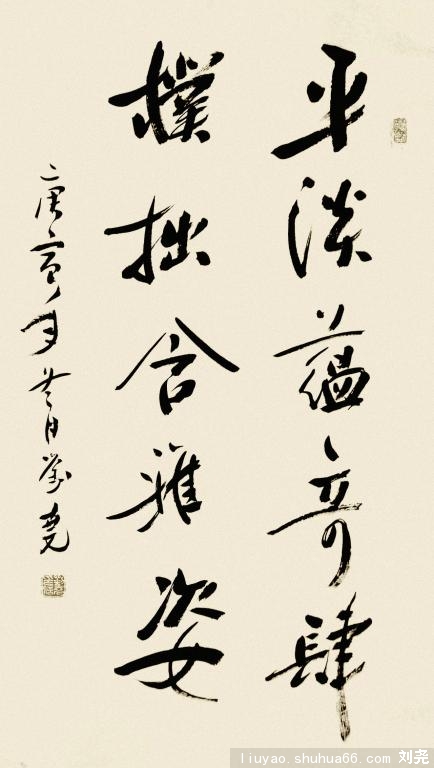 平淡蕴奇肆
樸拙含雅姿
庚寅 日 刘尧
liuyao.shuhua66.com 刘尧